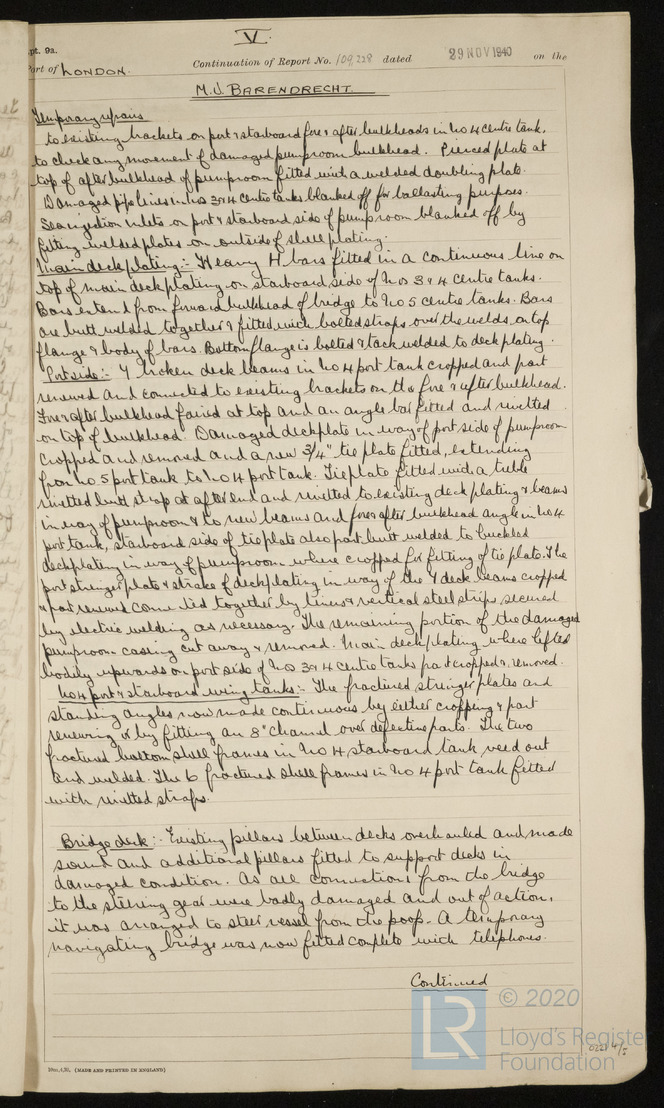 V.
pt. 9a.
Port of LONDON. Continuation of Report No. 109,228 dated 29 NOV 1940 on the
M.V. BARENDRECHT
Temporary repairs
to existing brackets on port & starboard fore & after bulkheads in No 4 centre tank,
to check any movement of damaged pumproom bulkhead. Pierced plate at
top of after bulkhead of pumproom fitted with a welded doubling plate.
Damaged pipe lines in Nos 3 & 4 centre tanks blanked off for ballasting purposes.
Sea injection inlets on port & starboard side of pumproom blanked off by
fitting welded plates on outside of shell plating.
Main deck plating:- Heavy H bars fitted in a continuous line on
top of main deck plating on starboard side of Nos 3 & 4 centre tanks.
Bars extend from forward bulkhead of bridge to No 5 centre tanks. Bars
are butt welded together & fitted with bolted straps over the welds on top
flange & body of bars. Bottom flange is bolted & tack welded to deck plating.
Port side:- 7 broken deck beams in No 4 port tank cropped and part
renewed and connected to existing brackets on the fore & after bulkhead.
Fore & after bulkhead faired at top and an angle bar fitted and rivetted
on top of bulkhead. Damaged deckplate in way of port side of pumproom
cropped and removed and a new 3/4" tie plate fitted, extending
from No 5 port tank to No 4 port tank. Tieplate fitted with a treble
rivetted butt strap at after end and rivetted to existing deck plating & beams
in way of pumproom & to new beams and fore & after bulkhead angle in No 4
port tank, starboard side of tie plate also part butt welded to buckled
deckplating in way of pumproom where cropped for fitting of tie plate. The
port stringer plate & strake of deckplating in way of the 7 deck beams cropped
& part renewed connected together by liners & vertical steel strips secured
by electric welding as necessary. The remaining portion of the damaged
pumproom casing cut away & removed. Main deck plating where lifted
bodily upwards on port side of No 3 & 4 centre tanks part cropped & removed.
No 4 port & starboard wing tanks:- The fractured stringer plates and
standing angles now made continuous by either cropping & part
renewing or by fitting an 8" channel over defective parts. The two
fractured bottom shell frames in No 4 starboard tank veed out
and welded. The 6 fractured shell frames in No 4 port tank fitted
with rivetted straps.
Bridge deck:- Existing pillars between decks overhauled and made
sound and additional pillars fitted to support decks in
damaged condition. As all connections from the bridge
to the steering gear were badly damaged and out of action,
it was arranged to steer vessel from the poop. A temporary
navigating bridge was now fitted complete with telephones.
Continued
LR © 2020
Lloyd's Register
Foundation
10m.4.39. (MADE AND PRINTED IN ENGLAND)